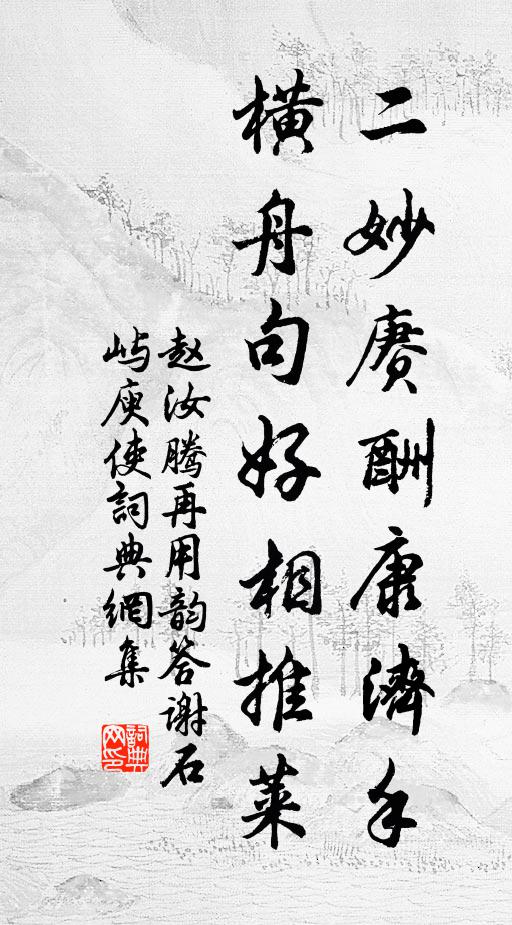 二妙赓酬康济手
横舟句好相推菜
赵汝腾再用韵答谢石
屿庾使詞典網集
詞典網印